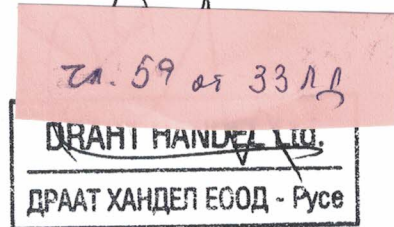 чл. 59 от ЗЗЛД
DRAHT HANDEL Ltd.
ДРААТ ХАНДЕЛ ЕООД - Русе